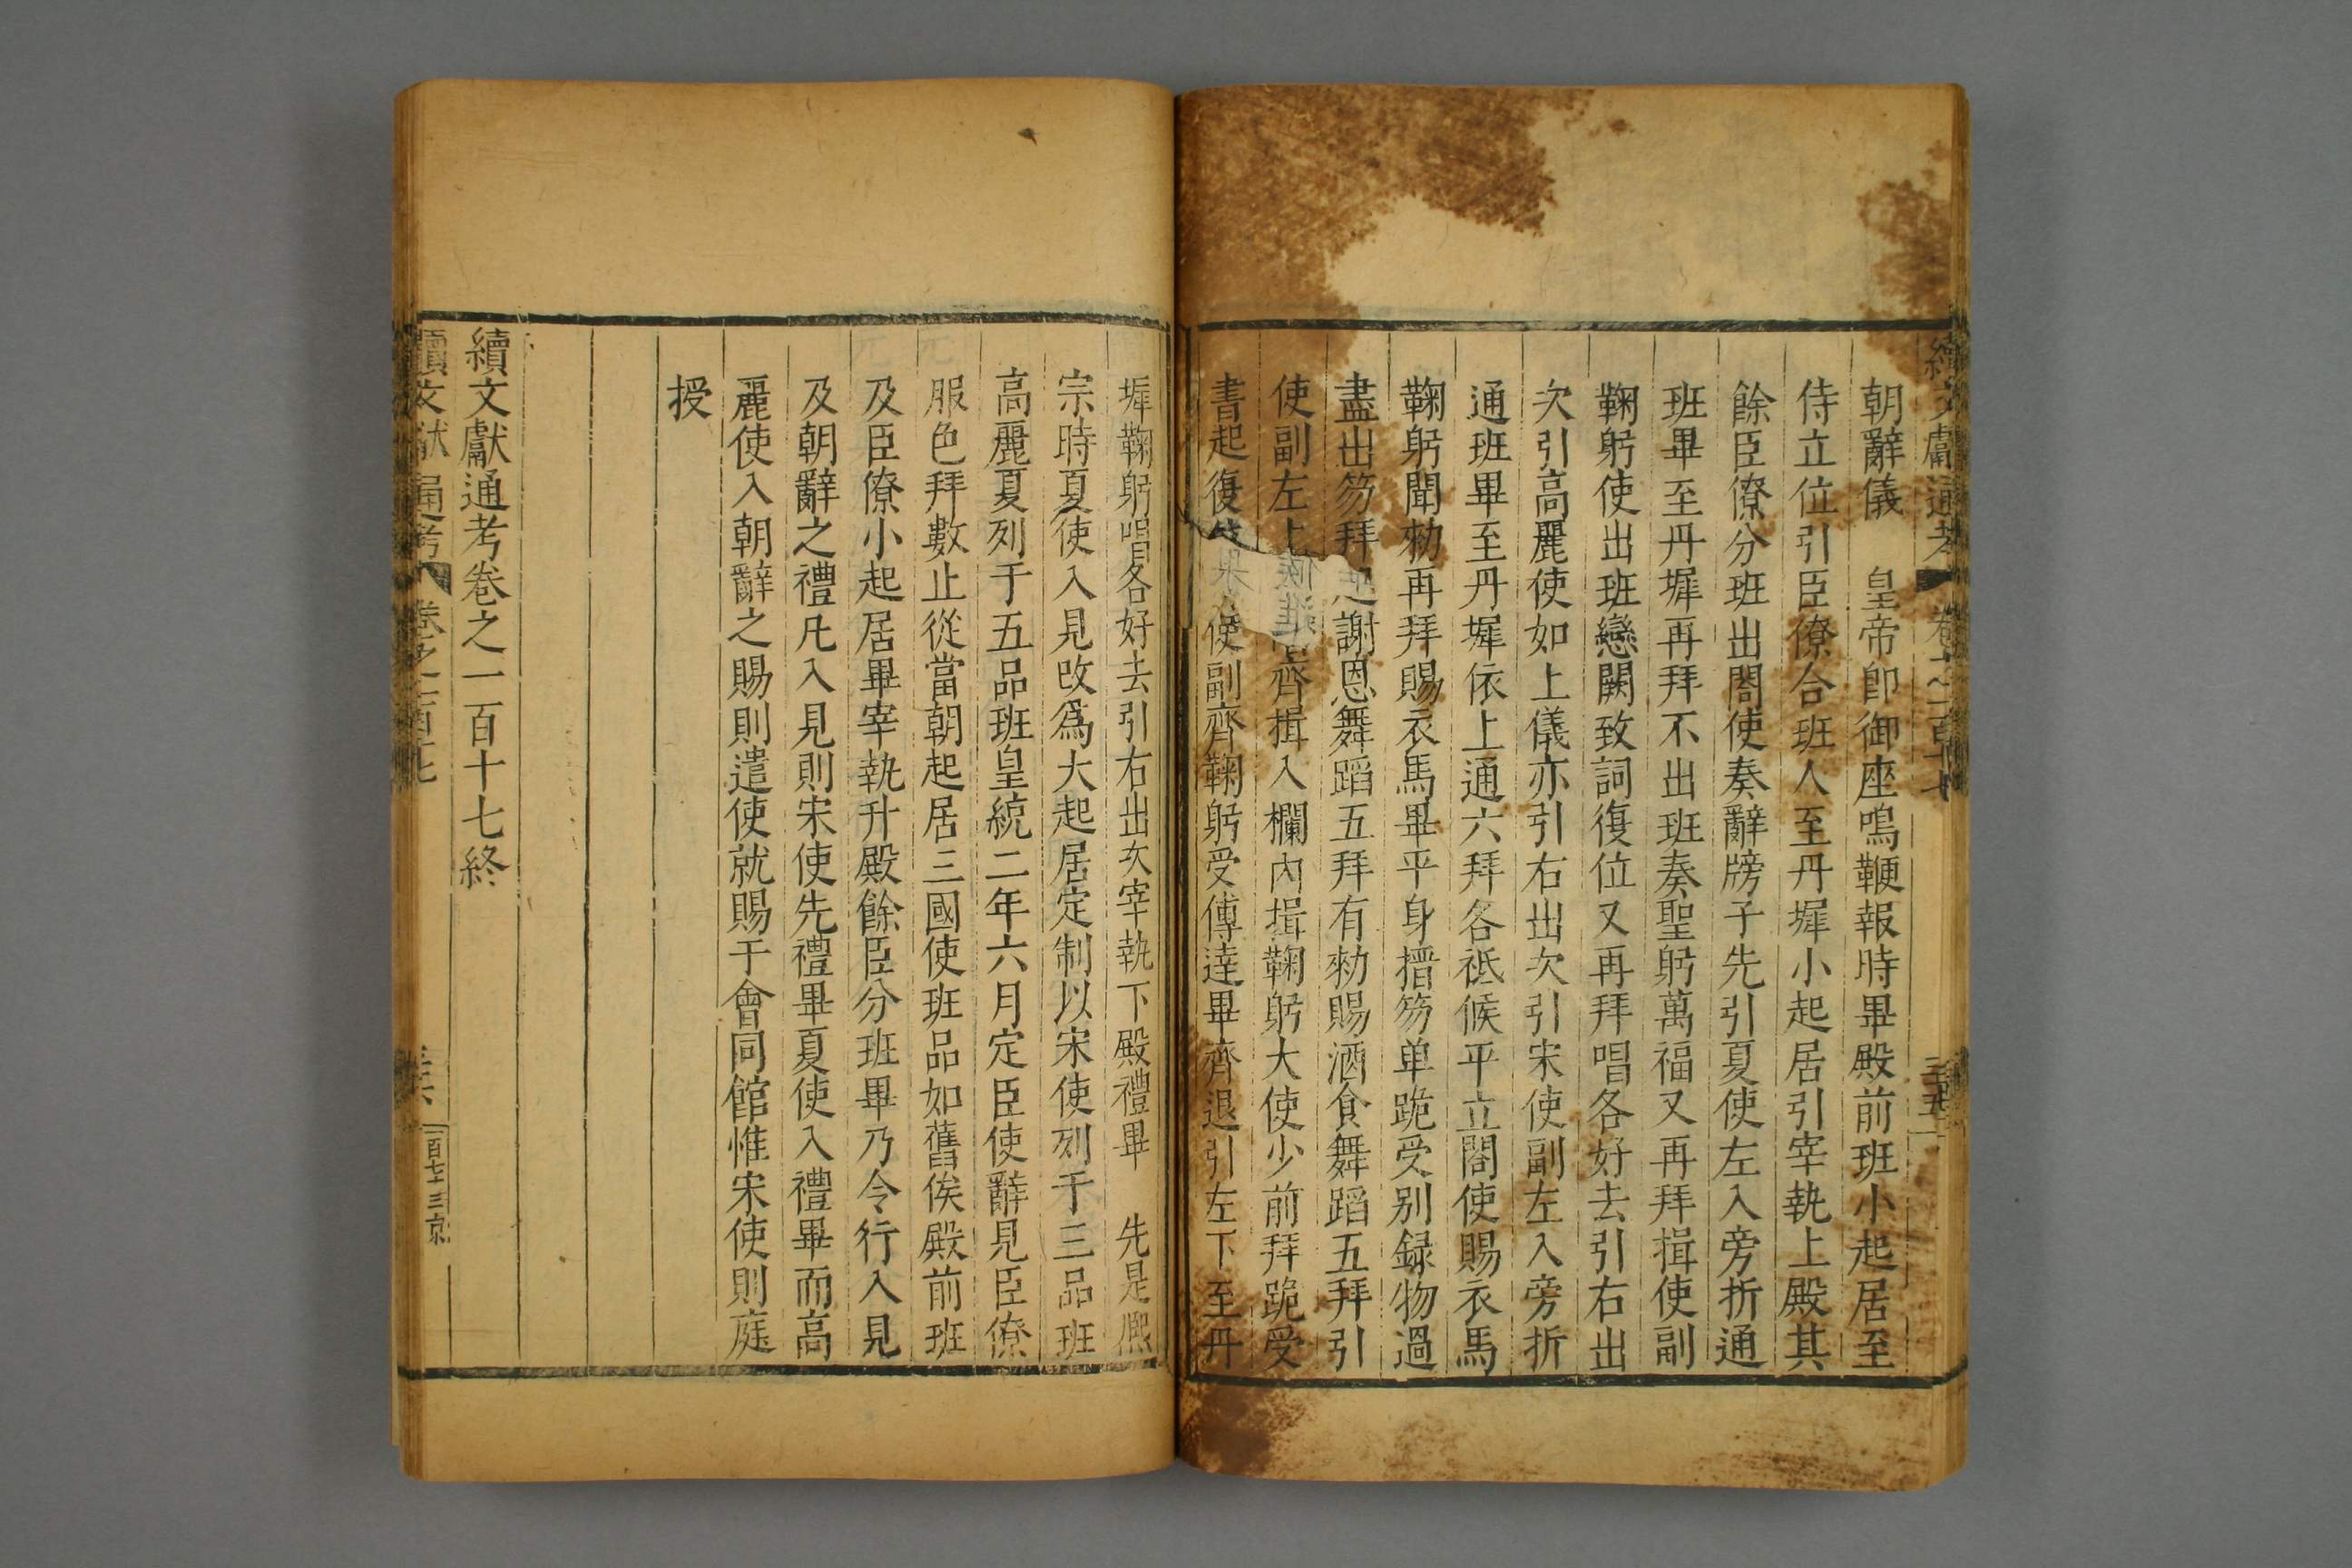 續文獻通考 卷之一百十七 三十五
朝辭儀 皇帝卽御座鳴鞭報時畢殿前班小起居至
侍立位引臣僚合班入至丹墀小起居引宰執上殿其
餘臣僚分班出閤使奏辭牓子先引夏使左入旁折通
班畢至丹墀再拜不出班奏聖躬萬福又再拜揖使副
鞠躬使出班戀闕致詞復位又再拜唱各好去引右出
次引高麗使如上儀亦引右出次引宋使副左入旁折
通班畢至丹墀依上通六拜各祗候平立閤使賜衣馬
鞠躬聞勑再拜賜衣馬畢平身搢笏单跪受别録物過
盡出笏拜起謝恩舞蹈五拜有勑賜酒食舞蹈五拜引
使副左上 齊揖入欄內揖鞠躬大使少前拜跪受
書起復 使副齊鞠躬受傳達畢齊退引左下至丹
墀鞠躬唱各好去引右出次宰執下殿禮畢 先是熙
宗時夏使入見改爲大起居定制以宋使列于三品班
高麗夏列于五品班皇統二年六月定臣使辭見臣僚
服色拜數止從當朝起居三國使班品如舊俟殿前班
及臣僚小起居畢宰執升殿餘臣分班畢乃令行入見
及朝辭之禮凡入見則宋使先禮畢夏使入禮畢而高
麗使入朝辭之賜則遣使就賜于會同館惟宋使則庭
授
續文獻通考卷之一百十七終
續文獻通考 卷之一百十七